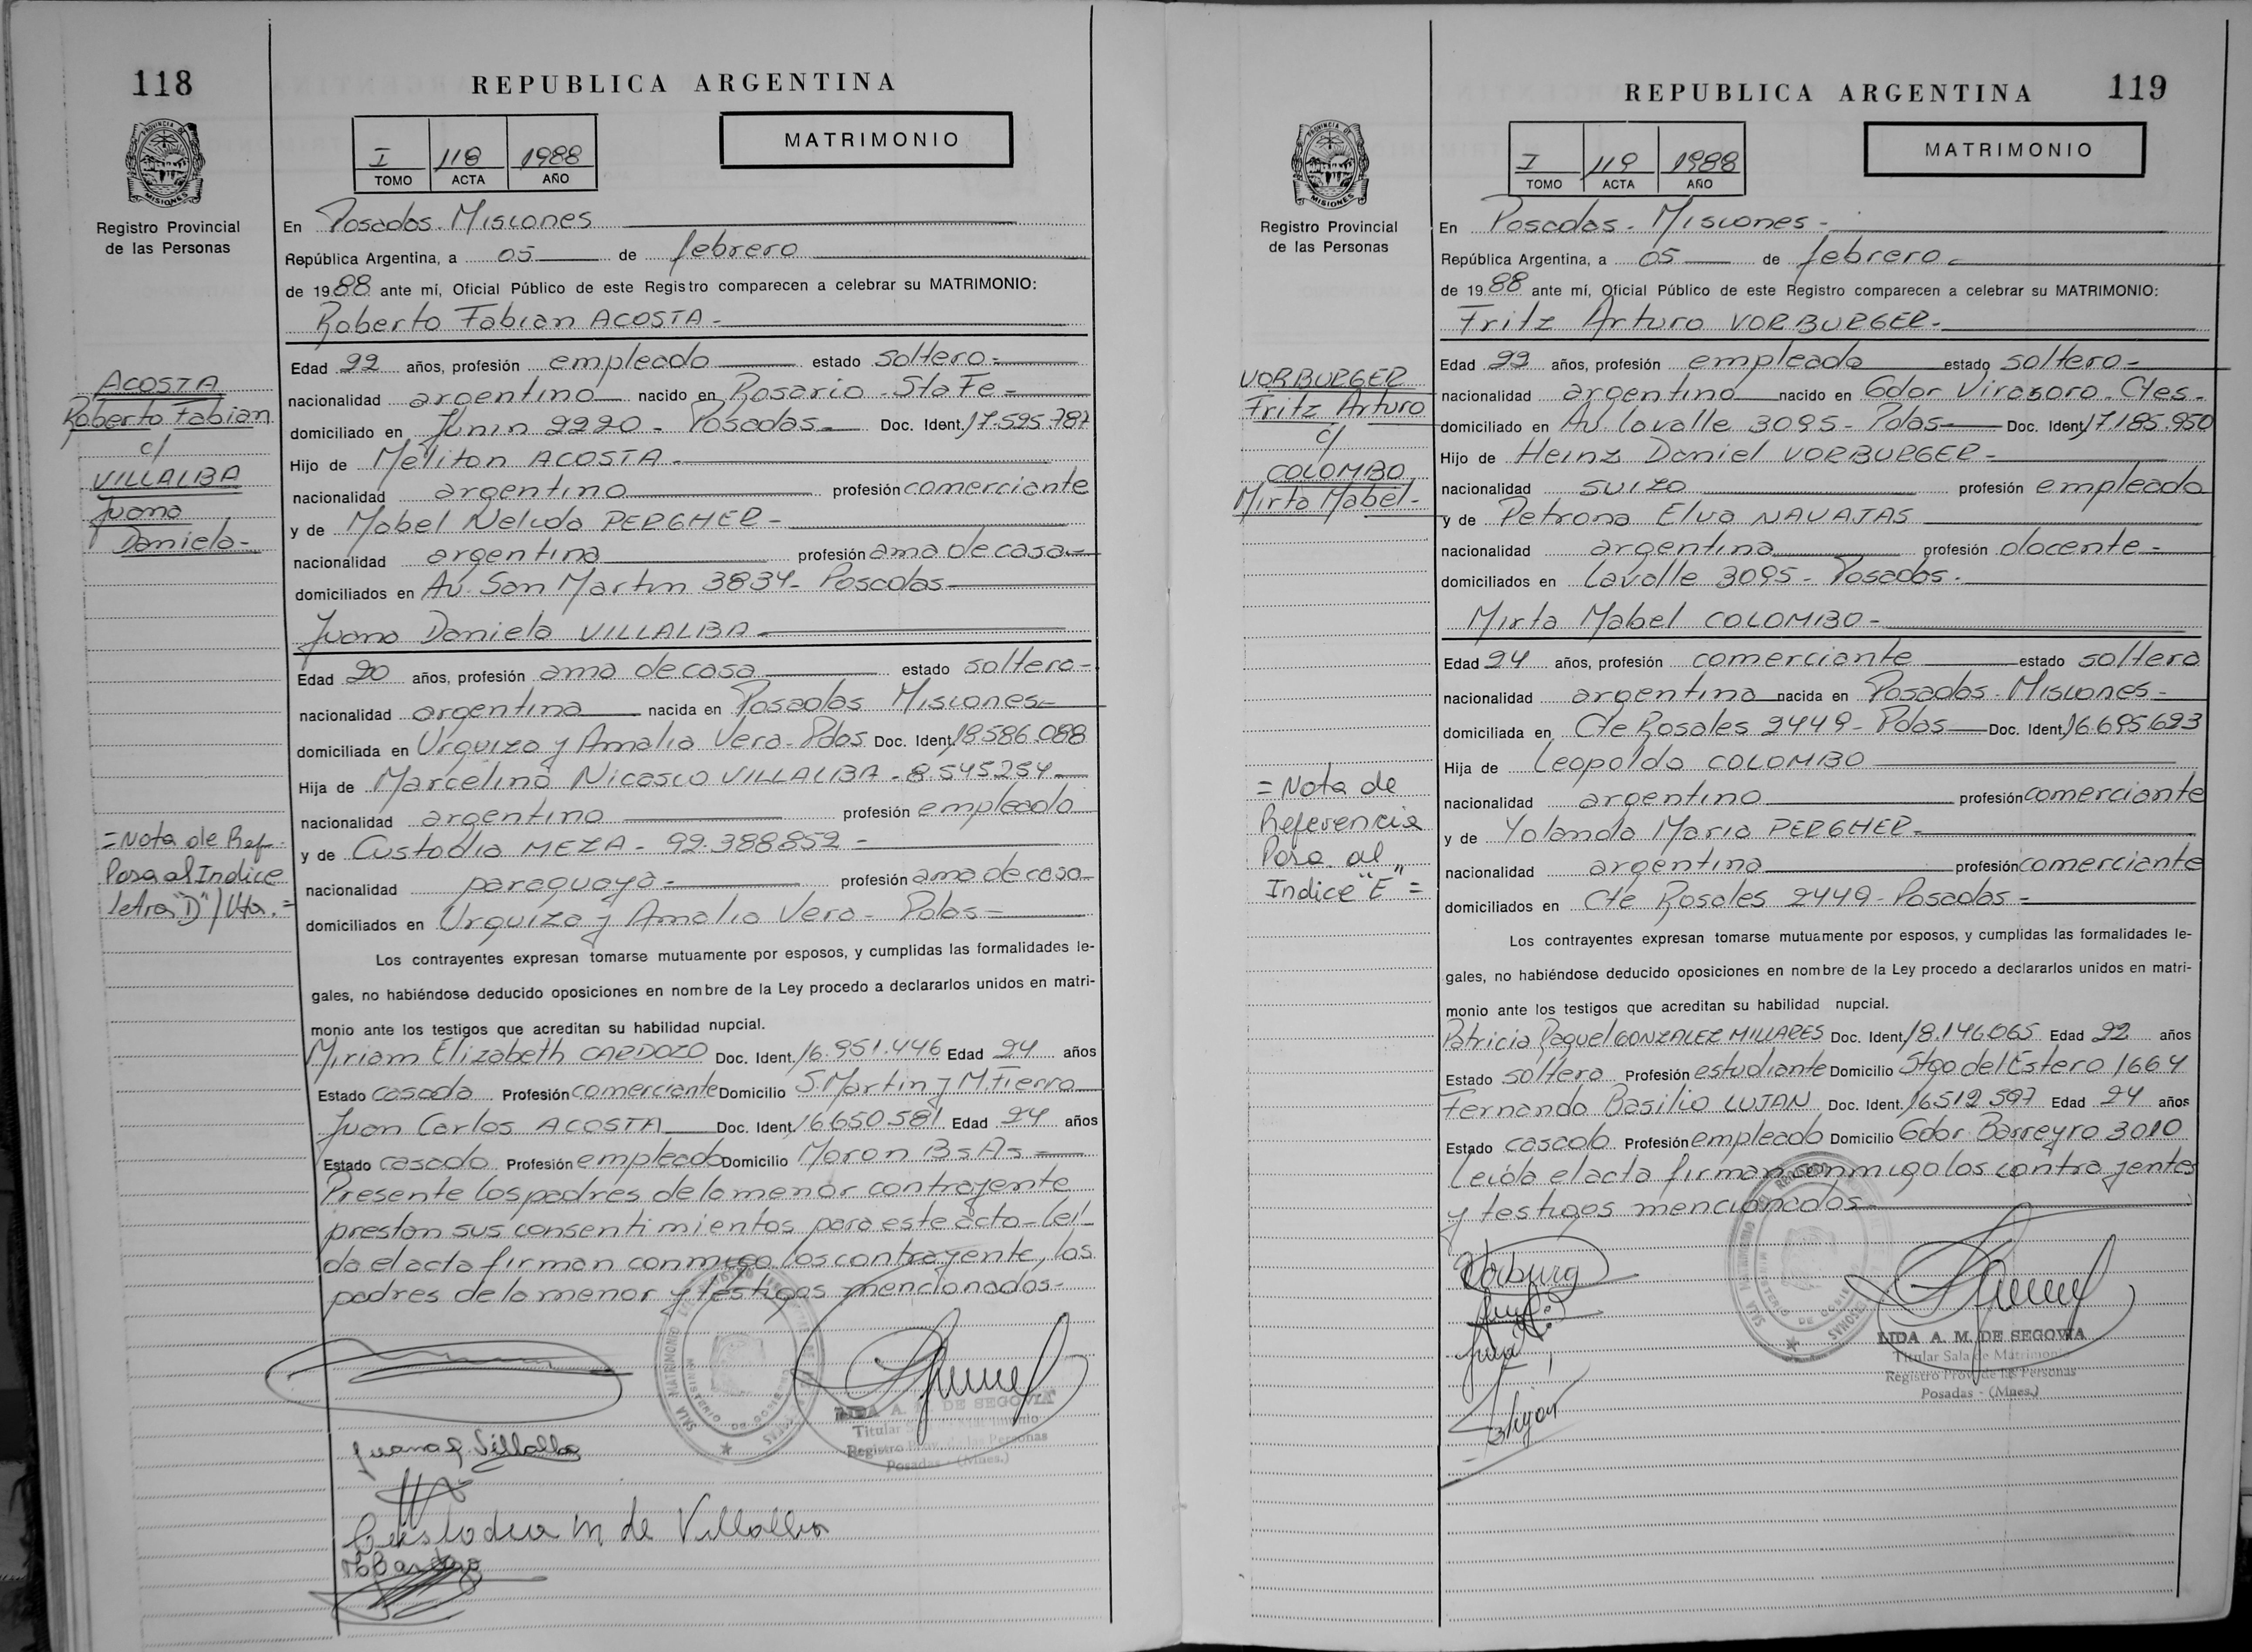 118
REPUBLICA ARGENTINA
PROVINCIA DE MISIONES
Registro Provincial
de las Personas
I 118 1988
TOMO ACTA AÑO
MATRIMONIO
En Posadas. Misiones
República Argentina, a 05 de febrero
de 1988 ante mí, Oficial Público de este Registro comparecen a celebrar su MATRIMONIO:
Roberto Fabian ACOSTA-
Edad 22 años, profesión empleado estado soltero-
nacionalidad argentino nacido en Rosario - Sta Fe-
domiciliado en Junin 2220- Posadas- Doc. Ident. 17.595.787
Hijo de Meliton ACOSTA-
nacionalidad argentino profesión comerciante
y de Mabel Nelida PERGHER-
nacionalidad argentina profesión ama de casa-
domiciliados en Av. San Martin 3834- Posadas-
Juana Daniela VILLALBA-
Edad 20 años, profesión ama de casa estado soltera-
nacionalidad argentina nacida en Posadas Misiones-
domiciliada en Urquiza y Amalia Vera- Pdas Doc. Ident. 18.586.088
Hija de Marcelino Nicasco VILLALBA - 8.545.254-
nacionalidad argentino profesión empleado
y de Custodia MEZA - 92.388.852 -
nacionalidad paraguaya- profesión ama de casa
domiciliados en Urquiza y Amalia Vera- Pdas-
Los contrayentes expresan tomarse mutuamente por esposos, y cumplidas las formalidades le-
gales, no habiéndose deducido oposiciones en nombre de la Ley procedo a declararlos unidos en matri-
monio ante los testigos que acreditan su habilidad nupcial.
Miriam Elizabeth CARDOZO Doc. Ident. 16.951.446 Edad 24 años
Estado casada Profesión comerciante Domicilio S. Martin y M. Fierro
Juan Carlos ACOSTA Doc. Ident. 16.650.581 Edad 24 años
Estado casado Profesión empleado Domicilio Moron Bs As-
Presente los padres de la menor contrayente
prestan sus consentimientos para este acto- leí-
da el acta firman conmigo los contrayente, los
padres de la menor y testigos mencionados-
ACOSTA
Roberto Fabian
c/
VILLALBA
Juana
Daniela-
=Nota de Ref.
Pasa al Indice
letra "D" / Vta.=
SALA MATRIMONIO
MINISTERIO DE GOBIERNO
LIDA A. M. DE SEGOVIA
Titular Sala de Matrimonio
Registro Prov. de las Personas
Posadas - (Mnes.)
Juana D. Villalba
Custodia M. de Villalba
119
REPUBLICA ARGENTINA
PROVINCIA DE MISIONES
Registro Provincial
de las Personas
I 119 1988
TOMO ACTA AÑO
MATRIMONIO
En Posadas. Misiones-
República Argentina, a 05 de febrero-
de 1988 ante mí, Oficial Público de este Registro comparecen a celebrar su MATRIMONIO:
Fritz Arturo VORBURGER-
Edad 22 años, profesión empleado estado soltero-
nacionalidad argentino nacido en Gdor Virasoro. Ctes-
domiciliado en Av Lavalle 3095- Pdas Doc. Ident. 17.185.950
Hijo de Heinz Daniel VORBURGER-
nacionalidad suizo profesión empleado
y de Petrona Elva NAVAJAS
nacionalidad argentina profesión docente-
domiciliados en Lavalle 3095- Posadas-
Mirta Mabel COLOMBO-
Edad 24 años, profesión comerciante estado soltera
nacionalidad argentina nacida en Posadas- Misiones-
domiciliada en Cte Rosales 2449- Pdas Doc. Ident. 16.695.693
Hija de Leopoldo COLOMBO
nacionalidad argentino profesión comerciante
y de Yolanda Maria PERGHER-
nacionalidad argentina profesión comerciante
domiciliados en Cte Rosales 2449- Posadas-
Los contrayentes expresan tomarse mutuamente por esposos, y cumplidas las formalidades le-
gales, no habiéndose deducido oposiciones en nombre de la Ley procedo a declararlos unidos en matri-
monio ante los testigos que acreditan su habilidad nupcial.
Patricia Raquel GONZALEZ MILLARES Doc. Ident. 18.146.065 Edad 22 años
Estado soltera Profesión estudiante Domicilio Stgo del Estero 1664
Fernando Basilio LUJAN Doc. Ident. 16.512.597 Edad 24 años
Estado casado Profesión empleado Domicilio Gdor. Barreyro 3010
Leida el acta firman conmigo los contrayentes
y testigos mencionados-
VORBURGER
Fritz Arturo
c/
COLOMBO
Mirta Mabel-
=Nota de
Referencia
Pasa al
Indice "E"=
SALA MATRIMONIO
MINISTERIO DE GOBIERNO
Vorburg
LIDA A. M. DE SEGOVIA
Titular Sala de Matrimonio
Registro Prov. de las Personas
Posadas - (Mnes.)